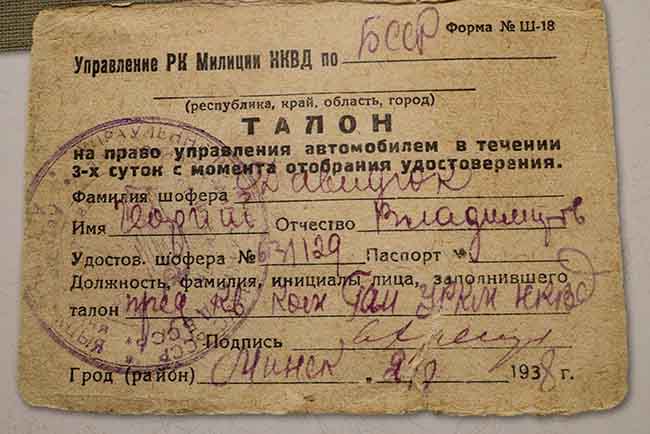 Форма № Ш-18
Управление РК Милиции НКВД по БССР
(республика, край, область, город)
ТАЛОН
на право управления автомобилем в течении
3-х суток с момента отобрания удостоверения.
Фамилия шофера
Имя Георгий Отчество Владимиров
Удостов. шофера № 631129 Паспорт №
Должность, фамилия, инициалы лица, заполнившего
талон пред кв ком УРКМ НКВД
Подпись
Грод (район) Минск 1938 г.